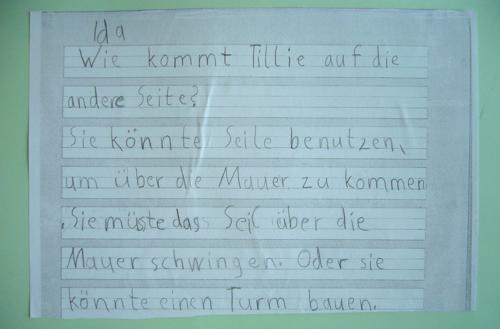 Ida
Wie kommt Tillie auf die
andere Seite?
Sie könnte Seile benutzen,
um über die Mauer zu kommen
. Sie müste das Seil über die
Mauer schwingen. Oder sie
könnte einen Turm bauen.